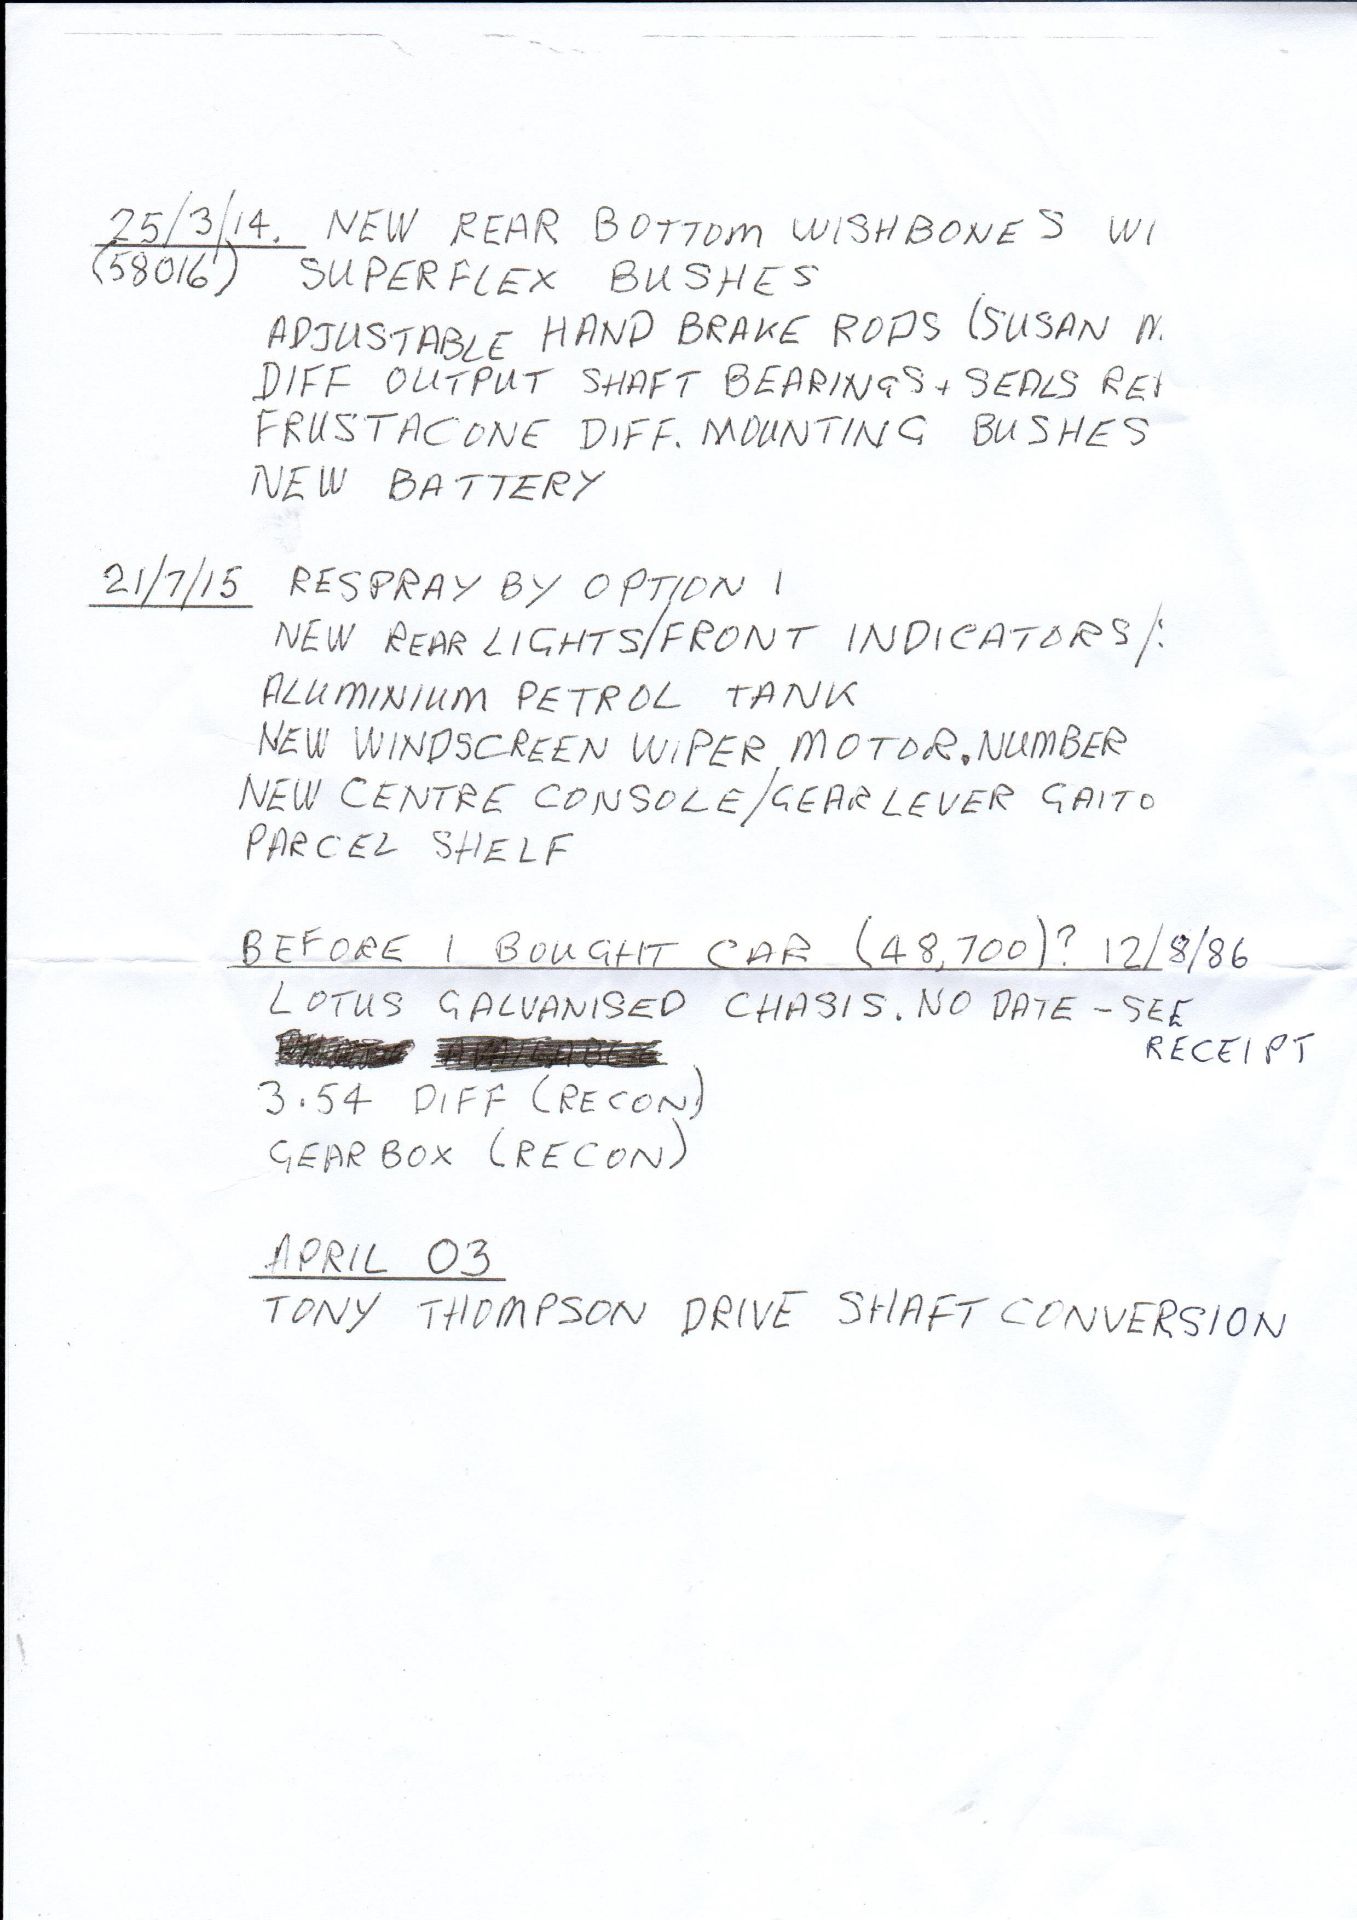 25/3/14. NEW REAR BOTTOM WISHBONES WI
(58016) SUPERFLEX BUSHES
ADJUSTABLE HAND BRAKE RODS (SUSAN
DIFF OUTPUT SHAFT BEARINGS + SEALS
FRUSTACONE DIFF. MOUNTING BUSHES
NEW BATTERY
21/7/15 RESPRAY BY OPTION 1
NEW REAR LIGHTS/FRONT INDICATORS/
ALUMINIUM PETROL TANK
NEW WINDSCREEN WIPER MOTOR. NUMBER
NEW CENTRE CONSOLE/GEAR LEVER GAITO
PARCEL SHELF
BEFORE I BOUGHT CAR (48,700)? 12/8/86
LOTUS GALVANISED CHASIS. NO DATE - SEE
RECEIPT
3.54 DIFF (RECON)
GEAR BOX (RECON)
APRIL 03
TONY THOMPSON DRIVE SHAFT CONVERSION